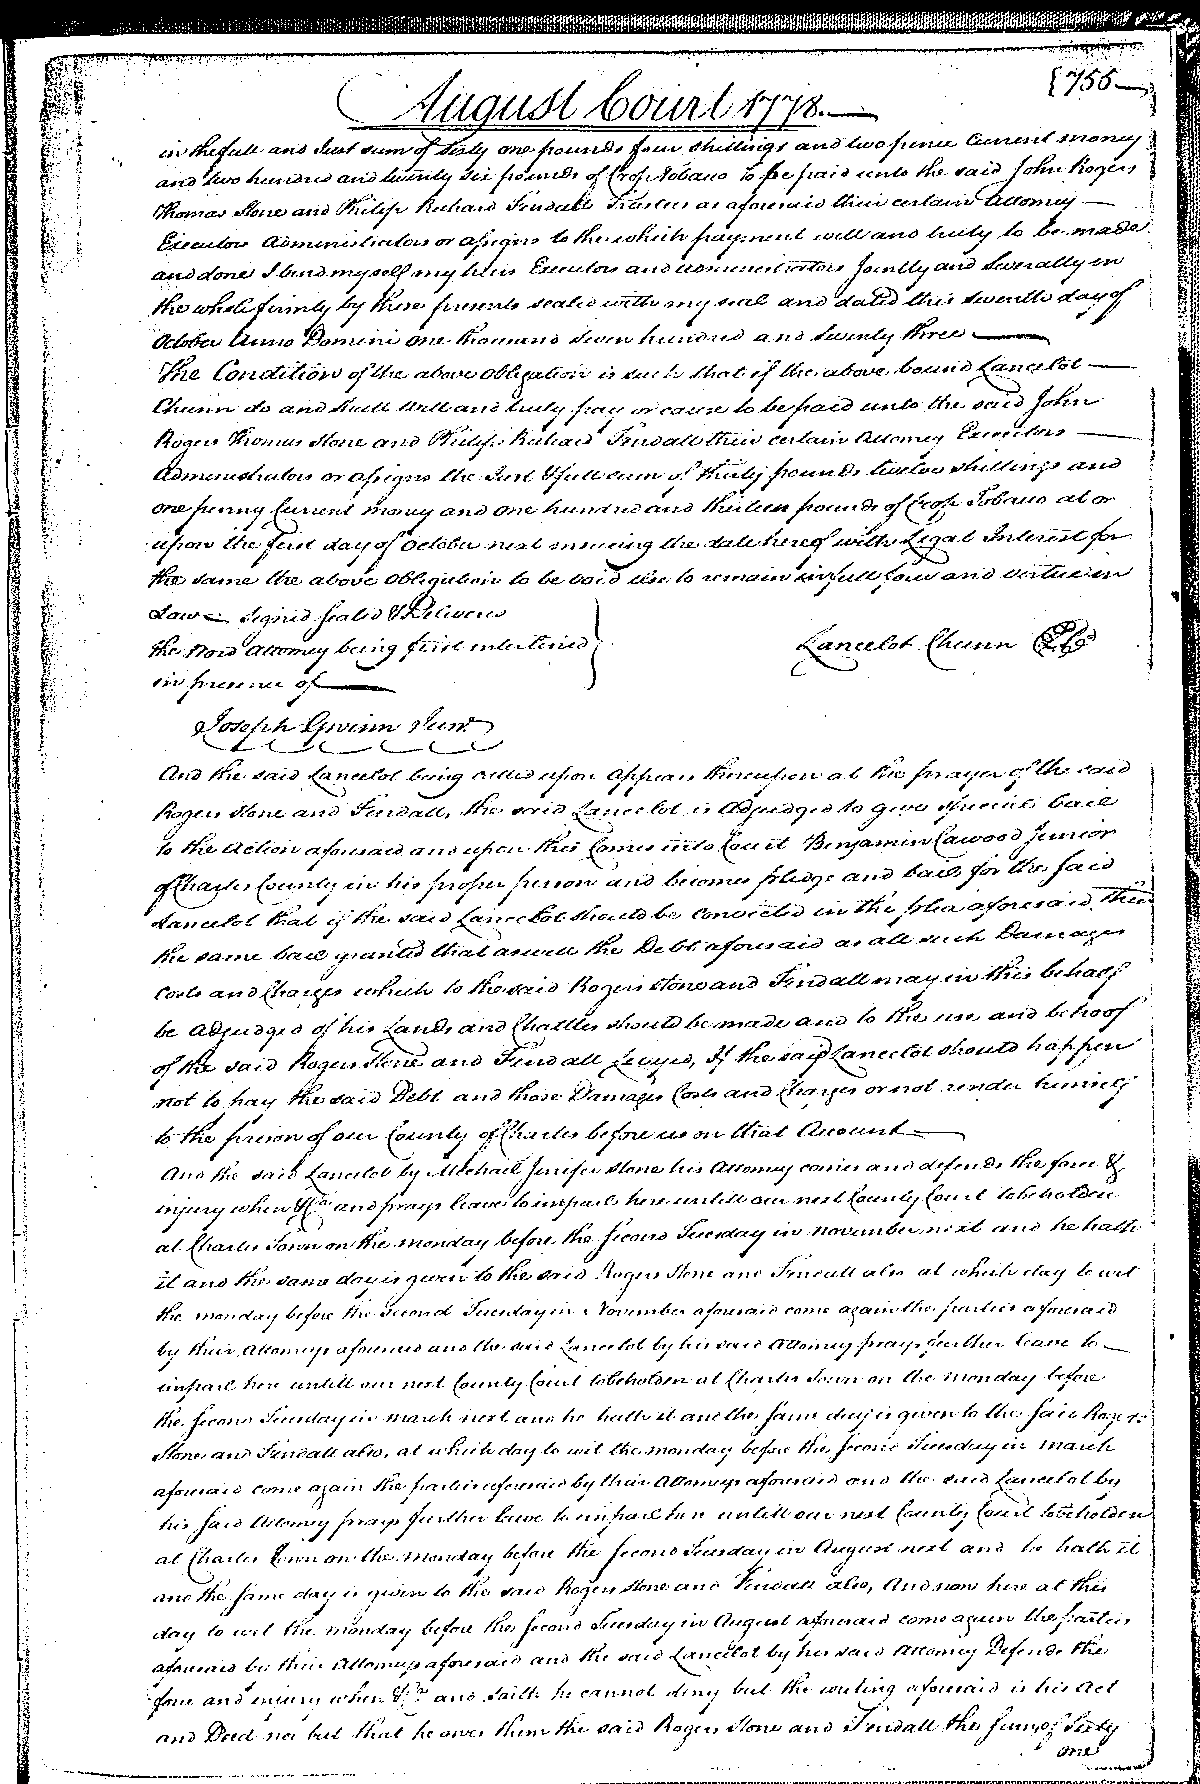 August Court 1778.
755
in the full and Just sum of Sixty one pounds four shillings and two pence Current money
and two hundred and twenty six pounds of Crop Tobacco to be paid unto the said John Rogers
Thomas Stone and Philip Richard Fendall Trustees as aforesaid their certain Attorney
Executors Administrators or assigns to the which payment well and truly to be made
and done I bind myself my heirs Executors and administrators Jointly and Severally in
the whole firmly by these presents sealed with my seal and dated this seventh day of
October Anno Domini one thousand seven hundred and seventy three
The Condition of the above obligation is such that if the above bound Lancelot
Chunn do and shall well and truly pay or cause to be paid unto the said John
Rogers Thomas Stone and Philip Richard Fendall their certain Attorney Executors
Administrators or assigns the Just & full sum of thirty pounds twelve shillings and
one penny Current money and one hundred and thirteen pounds of Crop Tobacco at or
upon the first day of October next ensueing the date hereof with Legal Interest for
the same the above obligation to be void else to remain in full force and virtue in
Law Signed Sealed & Delivered
the word Attorney being first interlined
in presence of
Lancelot Chunn
Joseph Gwinn Junr.
And the said Lancelot being called upon appears thereupon at the prayer of the said
Rogers Stone and Fendall, the said Lancelot is Adjudged to give special bail
to the Action aforesaid and upon this Comes into Court Benjamin Cawood Junior
of Charles County in his proper person and becomes pledge and bail for the said
Lancelot that if the said Lancelot should be convicted in the plea aforesaid then
the same bail granted that as well the Debt aforesaid as all such Damages
Costs and Charges which to the said Rogers Stone and Fendall may in this behalf
be adjudged of his Lands and Chattles should be made and to the use and behoof
of the said Rogers Stone and Fendall Levyed, If the said Lancelot should happen
not to pay the said Debt and those Damages Costs and Charges or not render himself
to the prison of our County of Charles before us on that Account
And the said Lancelot by Michael Jenifer Stone his Attorney comes and defends the force &
injury when &c. and prays leave to imparl here untill our next County Court to be holden
at Charles Town on the monday before the second Tuesday in november next and he hath
it and the same day is given to the said Rogers Stone and Fendall also at which day to wit
the monday before the Second Tuesday in November aforesaid come again the parties aforesaid
by their Attorneys aforesaid and the said Lancelot by his said Attorney prays further leave to
imparl here untill our next County Court to be holden at Charles Town on the monday before
the second Tuesday in march next and he hath it and the same day is given to the said Rogers
Stone and Fendall also, at which day to wit the monday before the second Tuesday in march
aforesaid come again the parties aforesaid by their Attorneys aforesaid and the said Lancelot by
his said Attorney prays further leave to imparl here untill our next County Court to be holden
at Charles Town on the monday before the second Tuesday in August next and he hath it
and the same day is given to the said Rogers Stone and Fendall also, And now here at this
day to wit the monday before the second Tuesday in August aforesaid come again the parties
aforesaid by their Attorneys aforesaid and the said Lancelot by his said Attorney Defends the
force and injury when &c. and saith he cannot deny but the writing aforesaid is his Act
and Deed nor but that he owes them the said Rogers Stone and Fendall the sum of Sixty
one